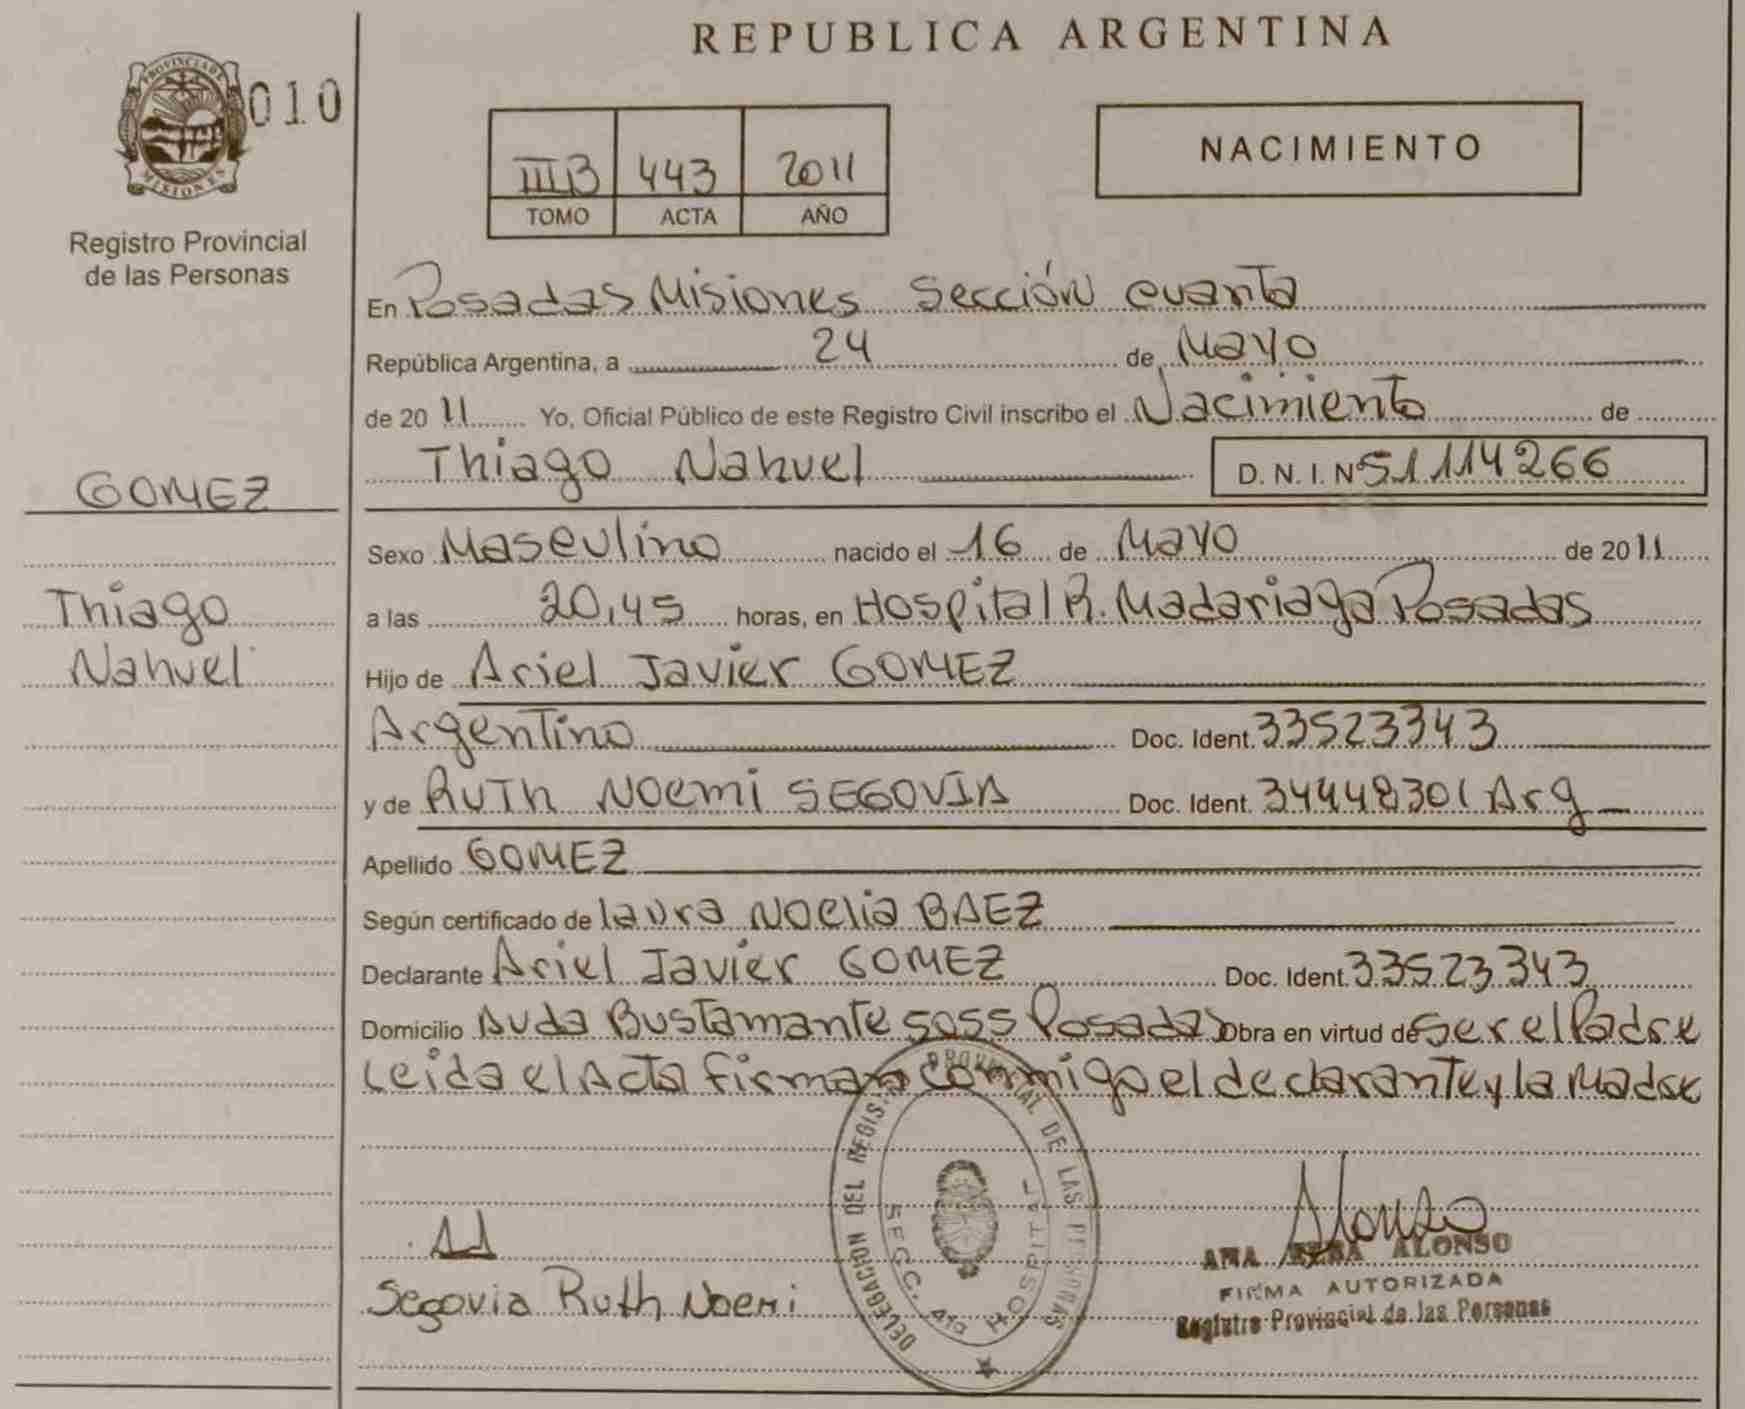 REPUBLICA ARGENTINA
PROVINCIA DE MISIONES
010
Registro Provincial
de las Personas
IIIB 443 2011
TOMO ACTA AÑO
NACIMIENTO
En Posadas Misiones Sección cuarta
República Argentina, a 24 de Mayo
de 2011 Yo, Oficial Público de este Registro Civil inscribo el Nacimiento de
Thiago Nahuel D. N. I. Nº 51114266
GOMEZ
Thiago
Nahuel
Sexo Masculino nacido el 16 de Mayo de 2011
a las 20,45 horas, en Hospital R. Madariaga Posadas
Hijo de Ariel Javier GOMEZ
Argentino Doc. Ident. 33523343
y de RUTH NOEMI SEGOVIA Doc. Ident. 34448301 Arg
Apellido GOMEZ
Según certificado de laura NOelia BAEZ
Declarante Ariel Javier GOMEZ Doc. Ident. 33523343
Domicilio Avda Bustamante 5055 Posadas Obra en virtud de ser el Padre
Leida el Acta firman conmigo el declarante y la Madre
DELEGACION DEL REGISTRO PROVINCIAL DE LAS PERSONAS
SECC. 4ta HOSPITAL
Segovia Ruth Noemi
Alonso
ANA ALONSO
FIRMA AUTORIZADA
Registro Provincial de las Personas